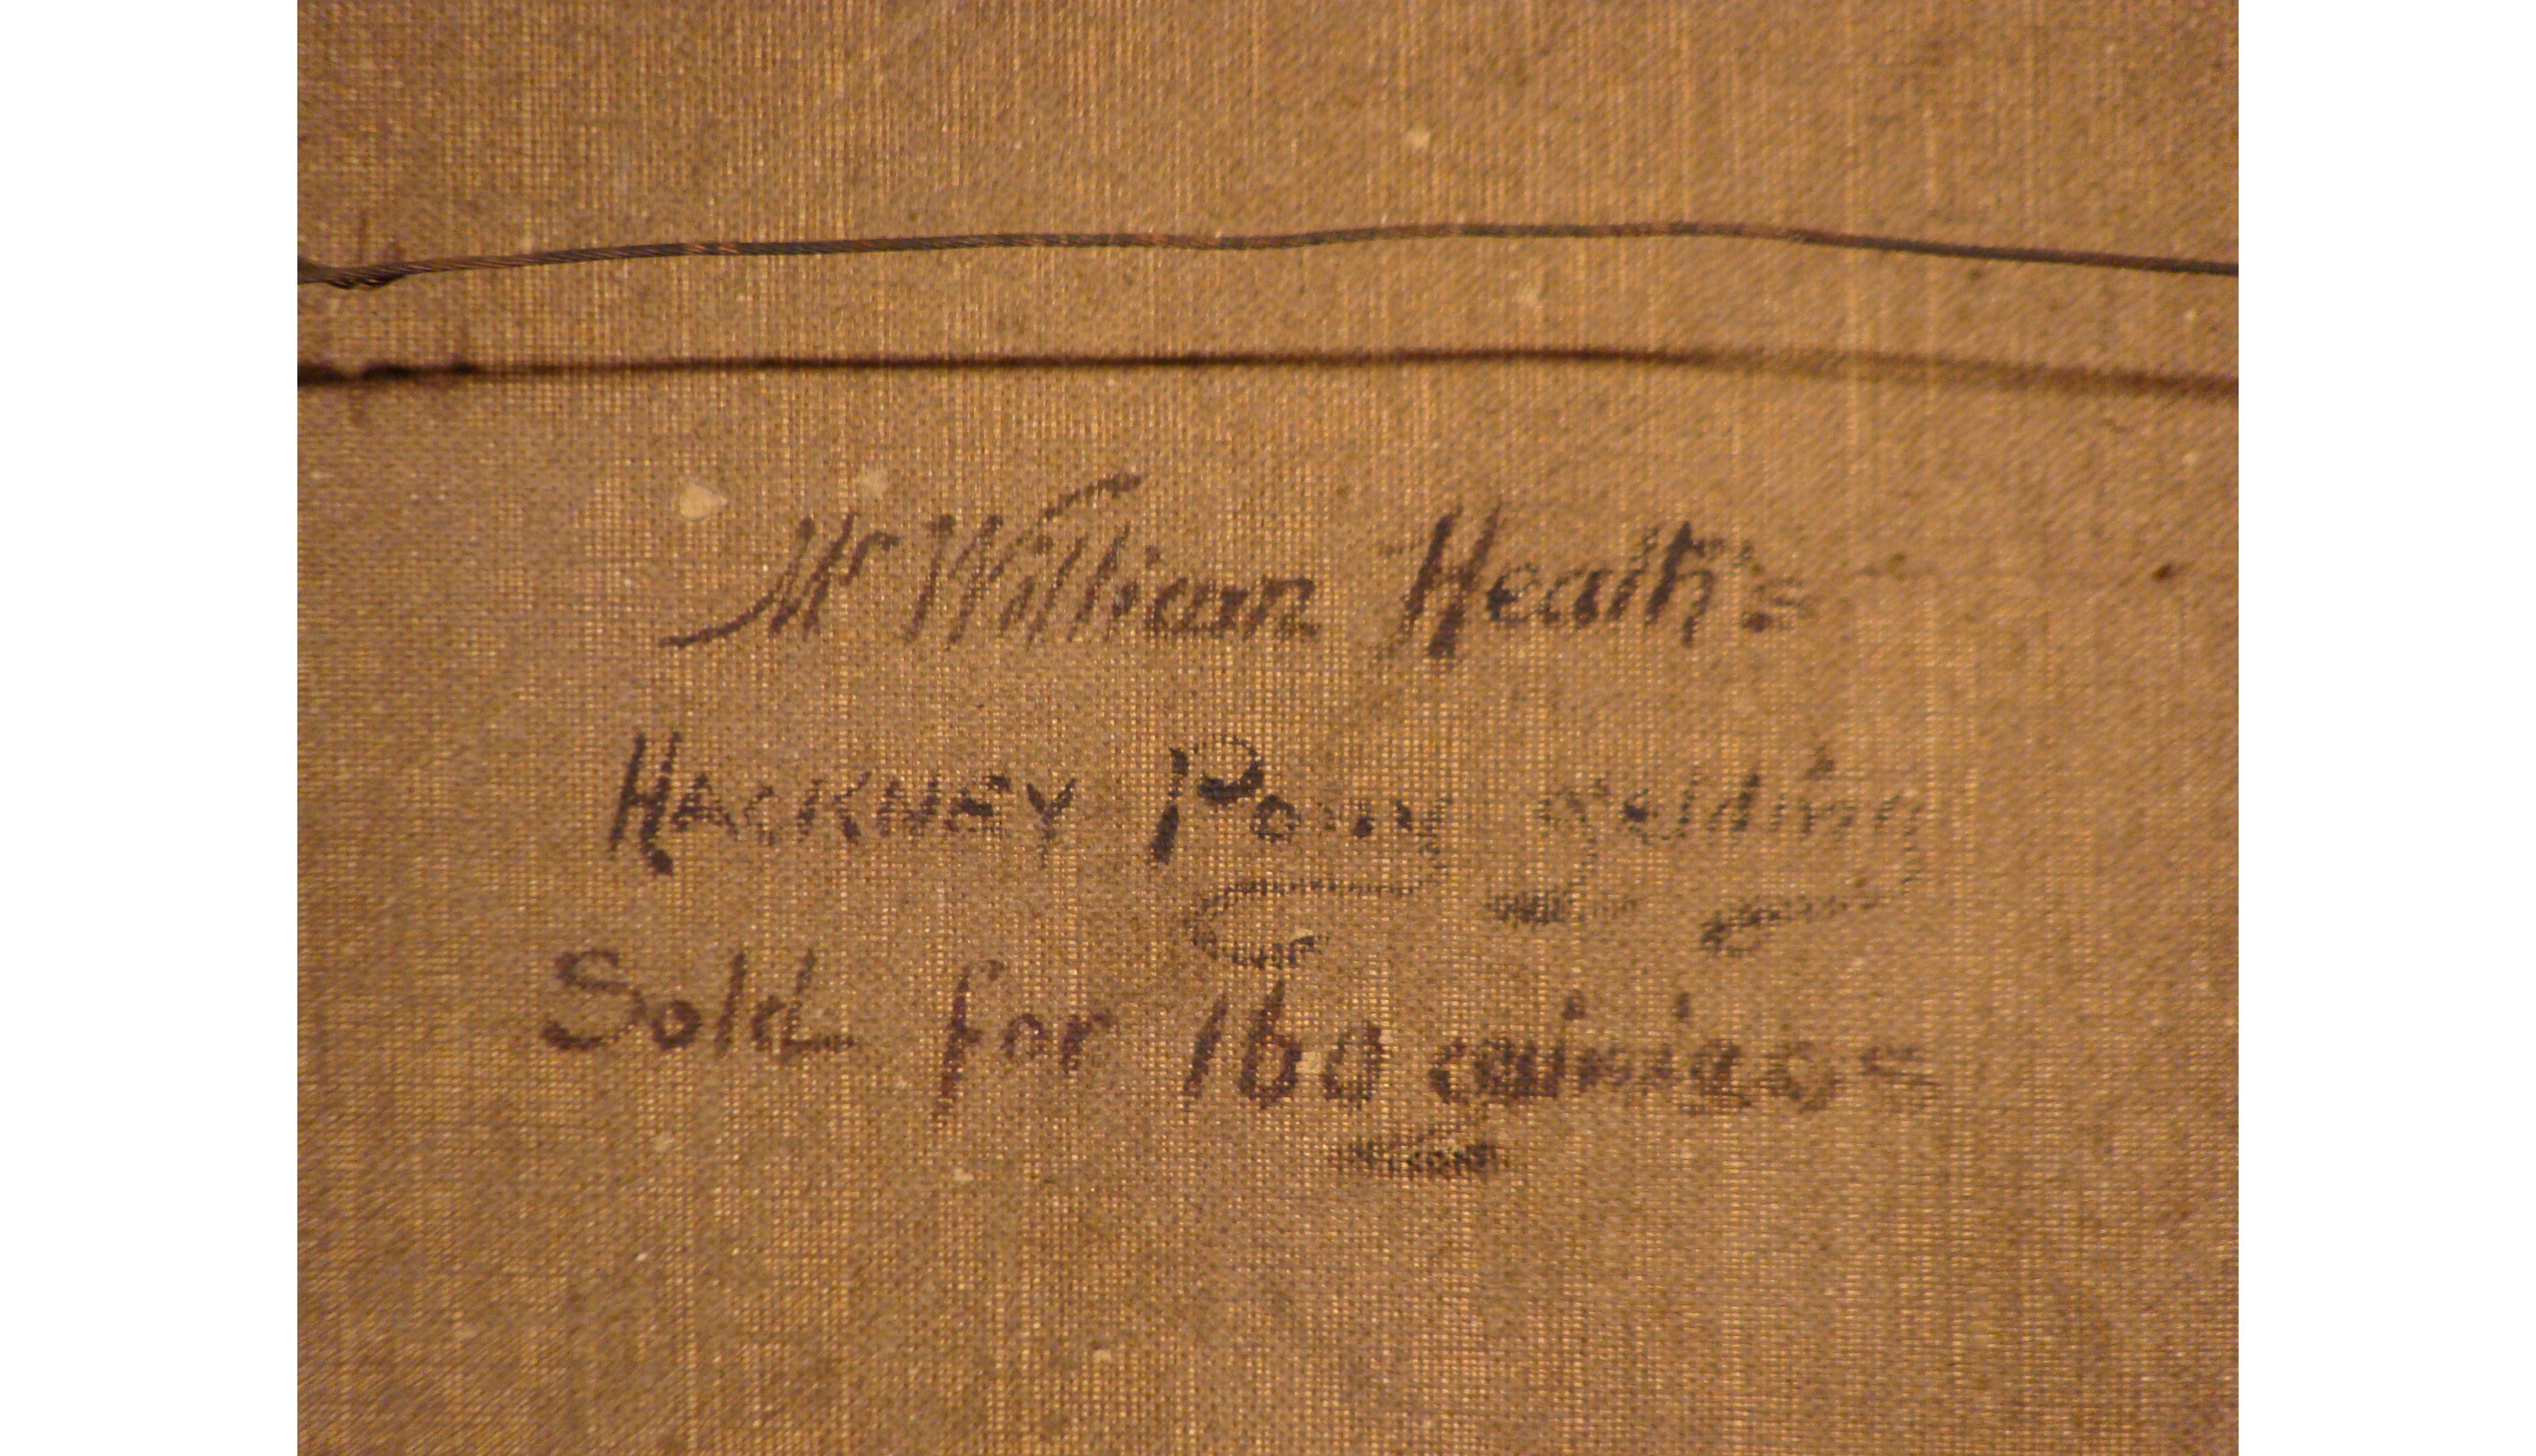 Mr William Heath's
HACKNEY Pony gelding
Sold for 160 guineas